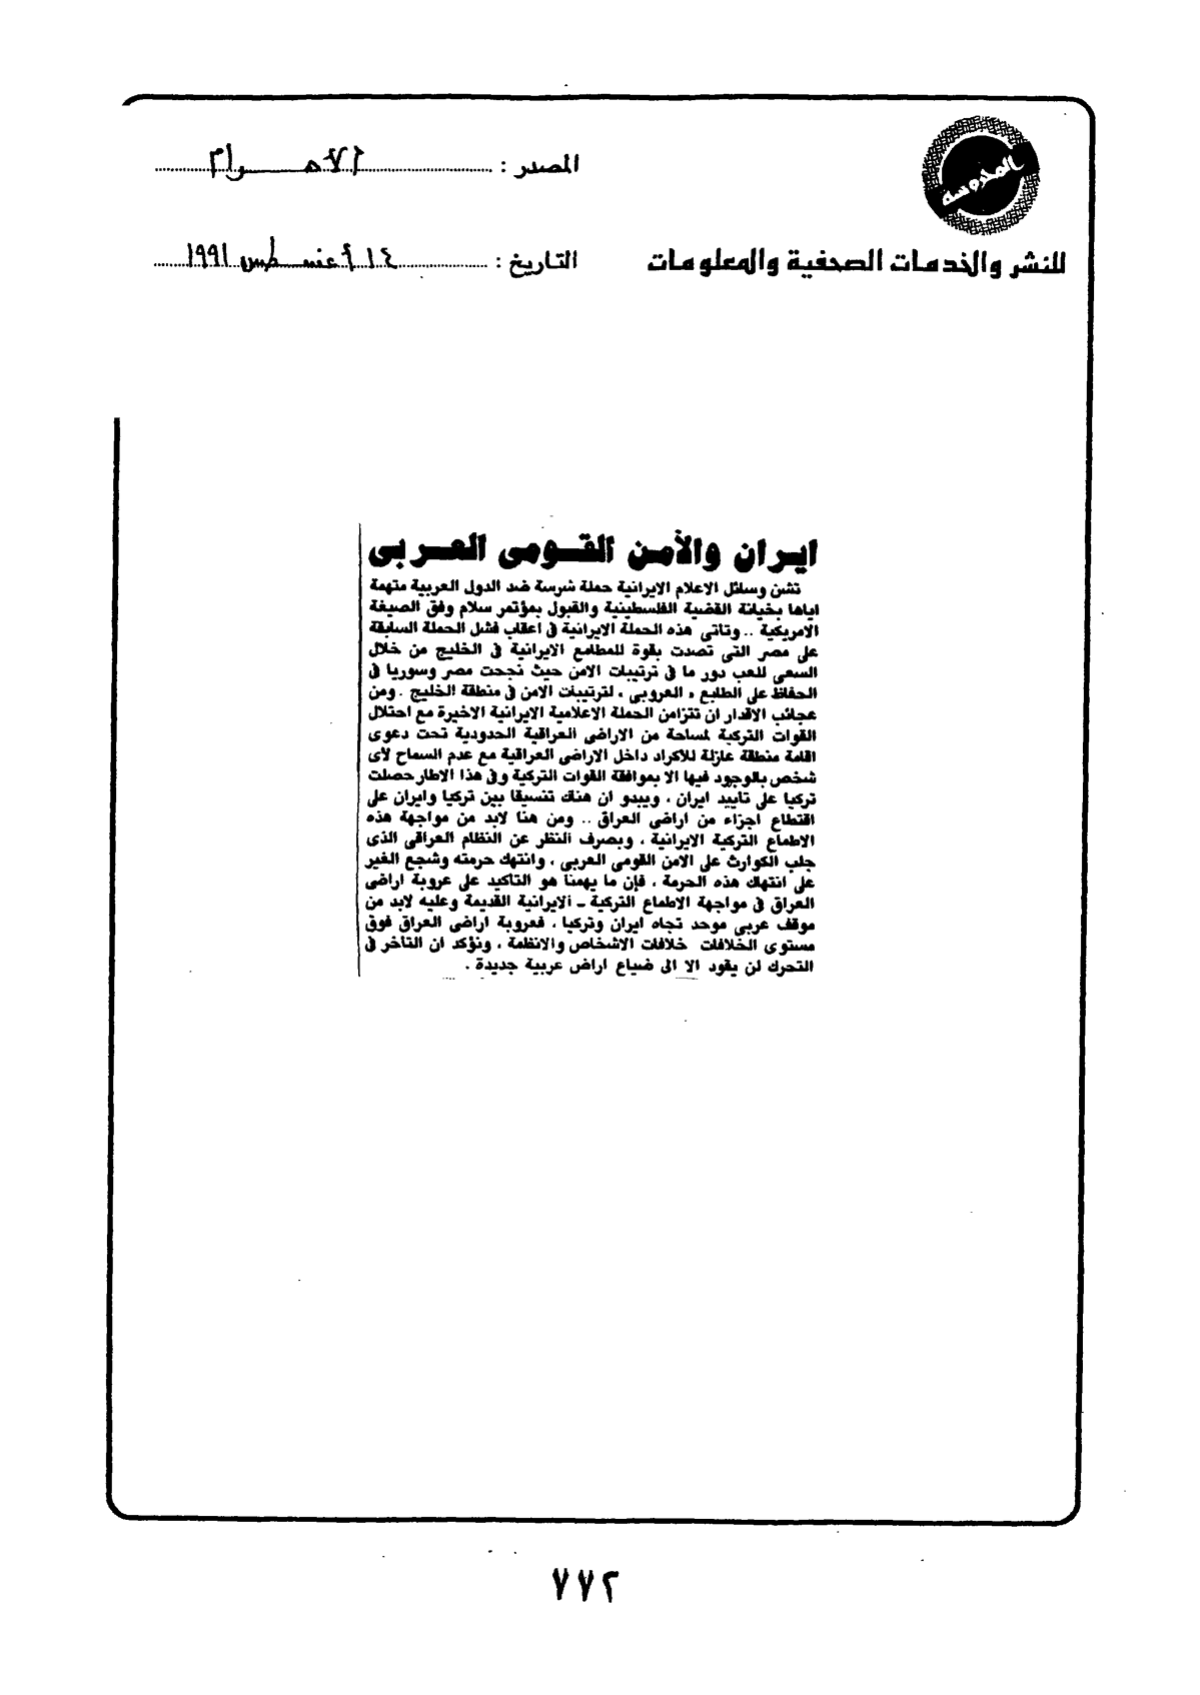 المحروسة
المصدر : الأهـــرام
للنشر والخدمات الصحفية والمعلومات
التاريخ : ١٤ أغسطس ١٩٩١
ايران والأمن القومى العربى
تشن وسائل الاعلام الايرانية حملة شرسة ضد الدول العربية متهمة
اياها بخيانة القضية الفلسطينية والقبول بمؤتمر سلام وفق الصيغة
الامريكية .. وتأتى هذه الحملة الايرانية فى اعقاب فشل الحملة السابقة
على مصر التى تصدت بقوة للمطامع الايرانية فى الخليج من خلال
السعى للعب دور ما فى ترتيبات الامن حيث نجحت مصر وسوريا فى
الحفاظ على الطابع « العروبى » لترتيبات الامن فى منطقة الخليج . ومن
عجائب الاقدار ان تتزامن الحملة الاعلامية الايرانية الاخيرة مع احتلال
القوات التركية لمساحة من الاراضى العراقية الحدودية تحت دعوى
اقامة منطقة عازلة للاكراد داخل الاراضى العراقية مع عدم السماح لأى
شخص بالوجود فيها الا بموافقة القوات التركية وفى هذا الاطار حصلت
تركيا على تأييد ايران ، ويبدو ان هناك تنسيقا بين تركيا وايران على
اقتطاع اجزاء من اراضى العراق .. ومن هنا لابد من مواجهة هذه
الاطماع التركية الايرانية ، وبصرف النظر عن النظام العراقى الذى
جلب الكوارث على الامن القومى العربى ، وانتهك حرمته وشجع الغير
على انتهاك هذه الحرمة ، فإن ما يهمنا هو التأكيد على عروبة اراضى
العراق فى مواجهة الاطماع التركية ـ الايرانية القديمة وعليه لابد من
موقف عربى موحد تجاه ايران وتركيا ، فعروبة اراضى العراق فوق
مستوى الخلافات خلافات الاشخاص والانظمة ، ونؤكد ان التأخر فى
التحرك لن يقود الا الى ضياع اراض عربية جديدة .
٧٧٢